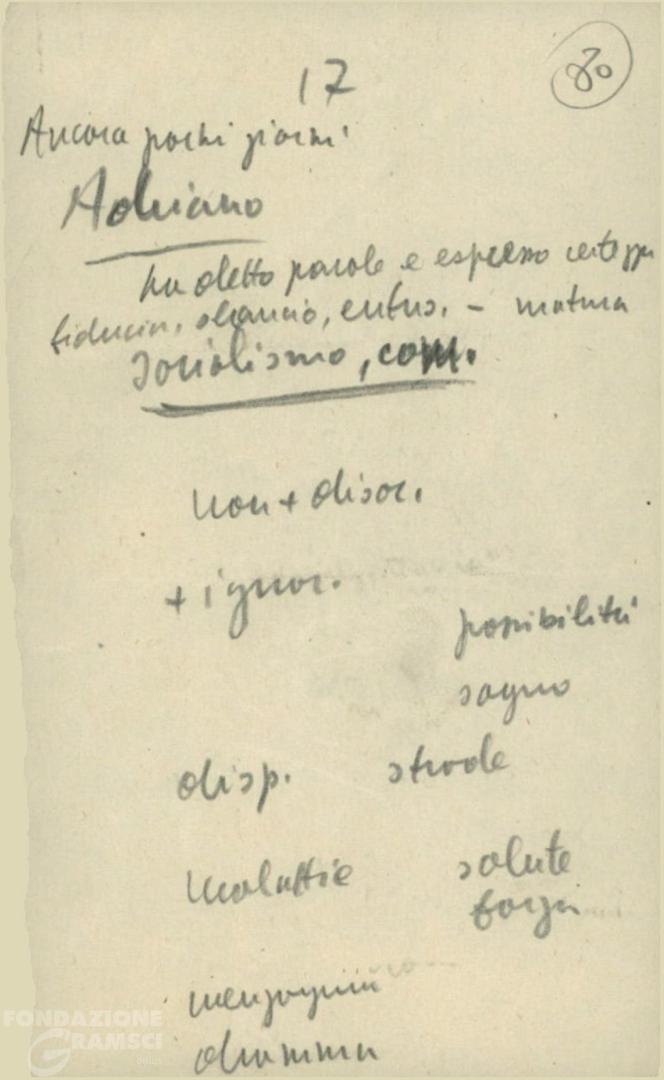 17
80
Ancora pochi giorni
Adriano
ha detto parole e espresso certezza
fiducia, slancio, entus. - matura
Socialismo, com.
non + disoc.
+ ignor.
possibilità
sogno
disp. strade
malattie salute
forza
menzogna
dramma
FONDAZIONE
GRAMSCI